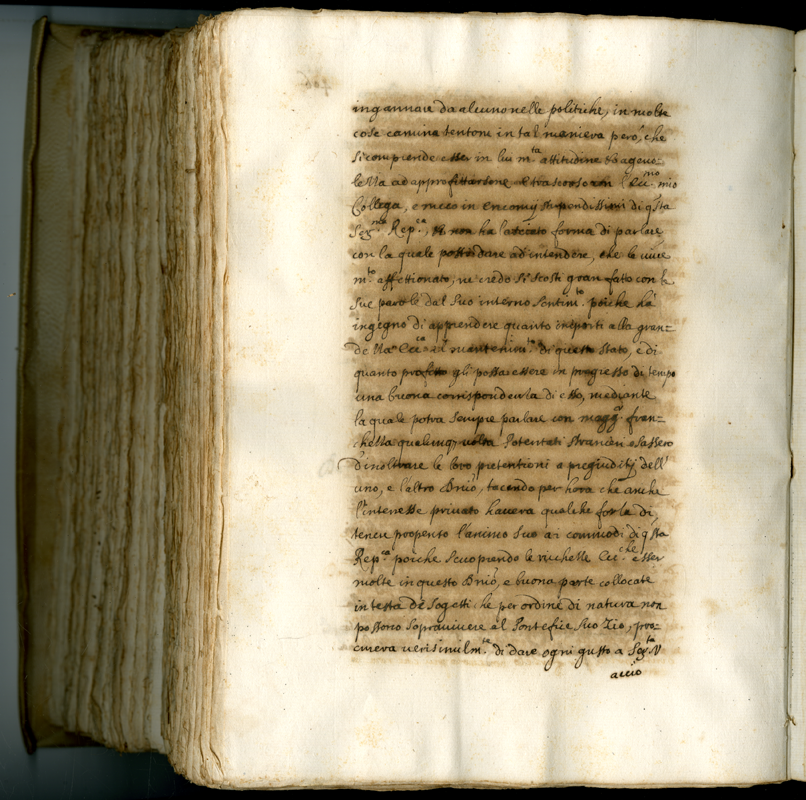 ingannare da alcuno nelle politiche, in molte
cose camina tentoni in tal maniera però, che
si comprende esser in lui m.ta attitudine
ad approfittarsene mio
Collega, e ricco in encomij stupendissimi di q.sta
Ser.ma Rep.ca, non ha lasciato forma di parlare
con la quale possi dare ad intendere, che le vive
m.to affettionato, ne credo si scosti gran fatto con le
sue parole dal suo interno sentim.to poiche ha
ingegno di apprendere quanto importi alla gran=
dezza Ecc.ca il mantenim.to di questo stato, e di
quanto profitto gli possa essere in progresso di tempo
una buona corrispondenza di esso, mediante
la quale potrà sempre parlare con magg.r fran=
chezza qualunq; volta Potentati stranieri osassero
d'inoltrare le loro pretentioni a pregiuditij dell'
uno, e l'altro Dnio, tacendo per hora che anche
l'interesse privato haverà qualche forza di
tener propenso l'animo suo ai commodi di q.sta
Rep.ca poiche scuoprendo le richezze Ecc.che esser
molte in questo Dnio, e buona parte collocate
in testa di sogetti che per ordine di natura non
possono sopravivere al Pontefice suo Zio, pro=
curerà verisimilm.te di dare ogni gusto a Ser.tà V
acciò